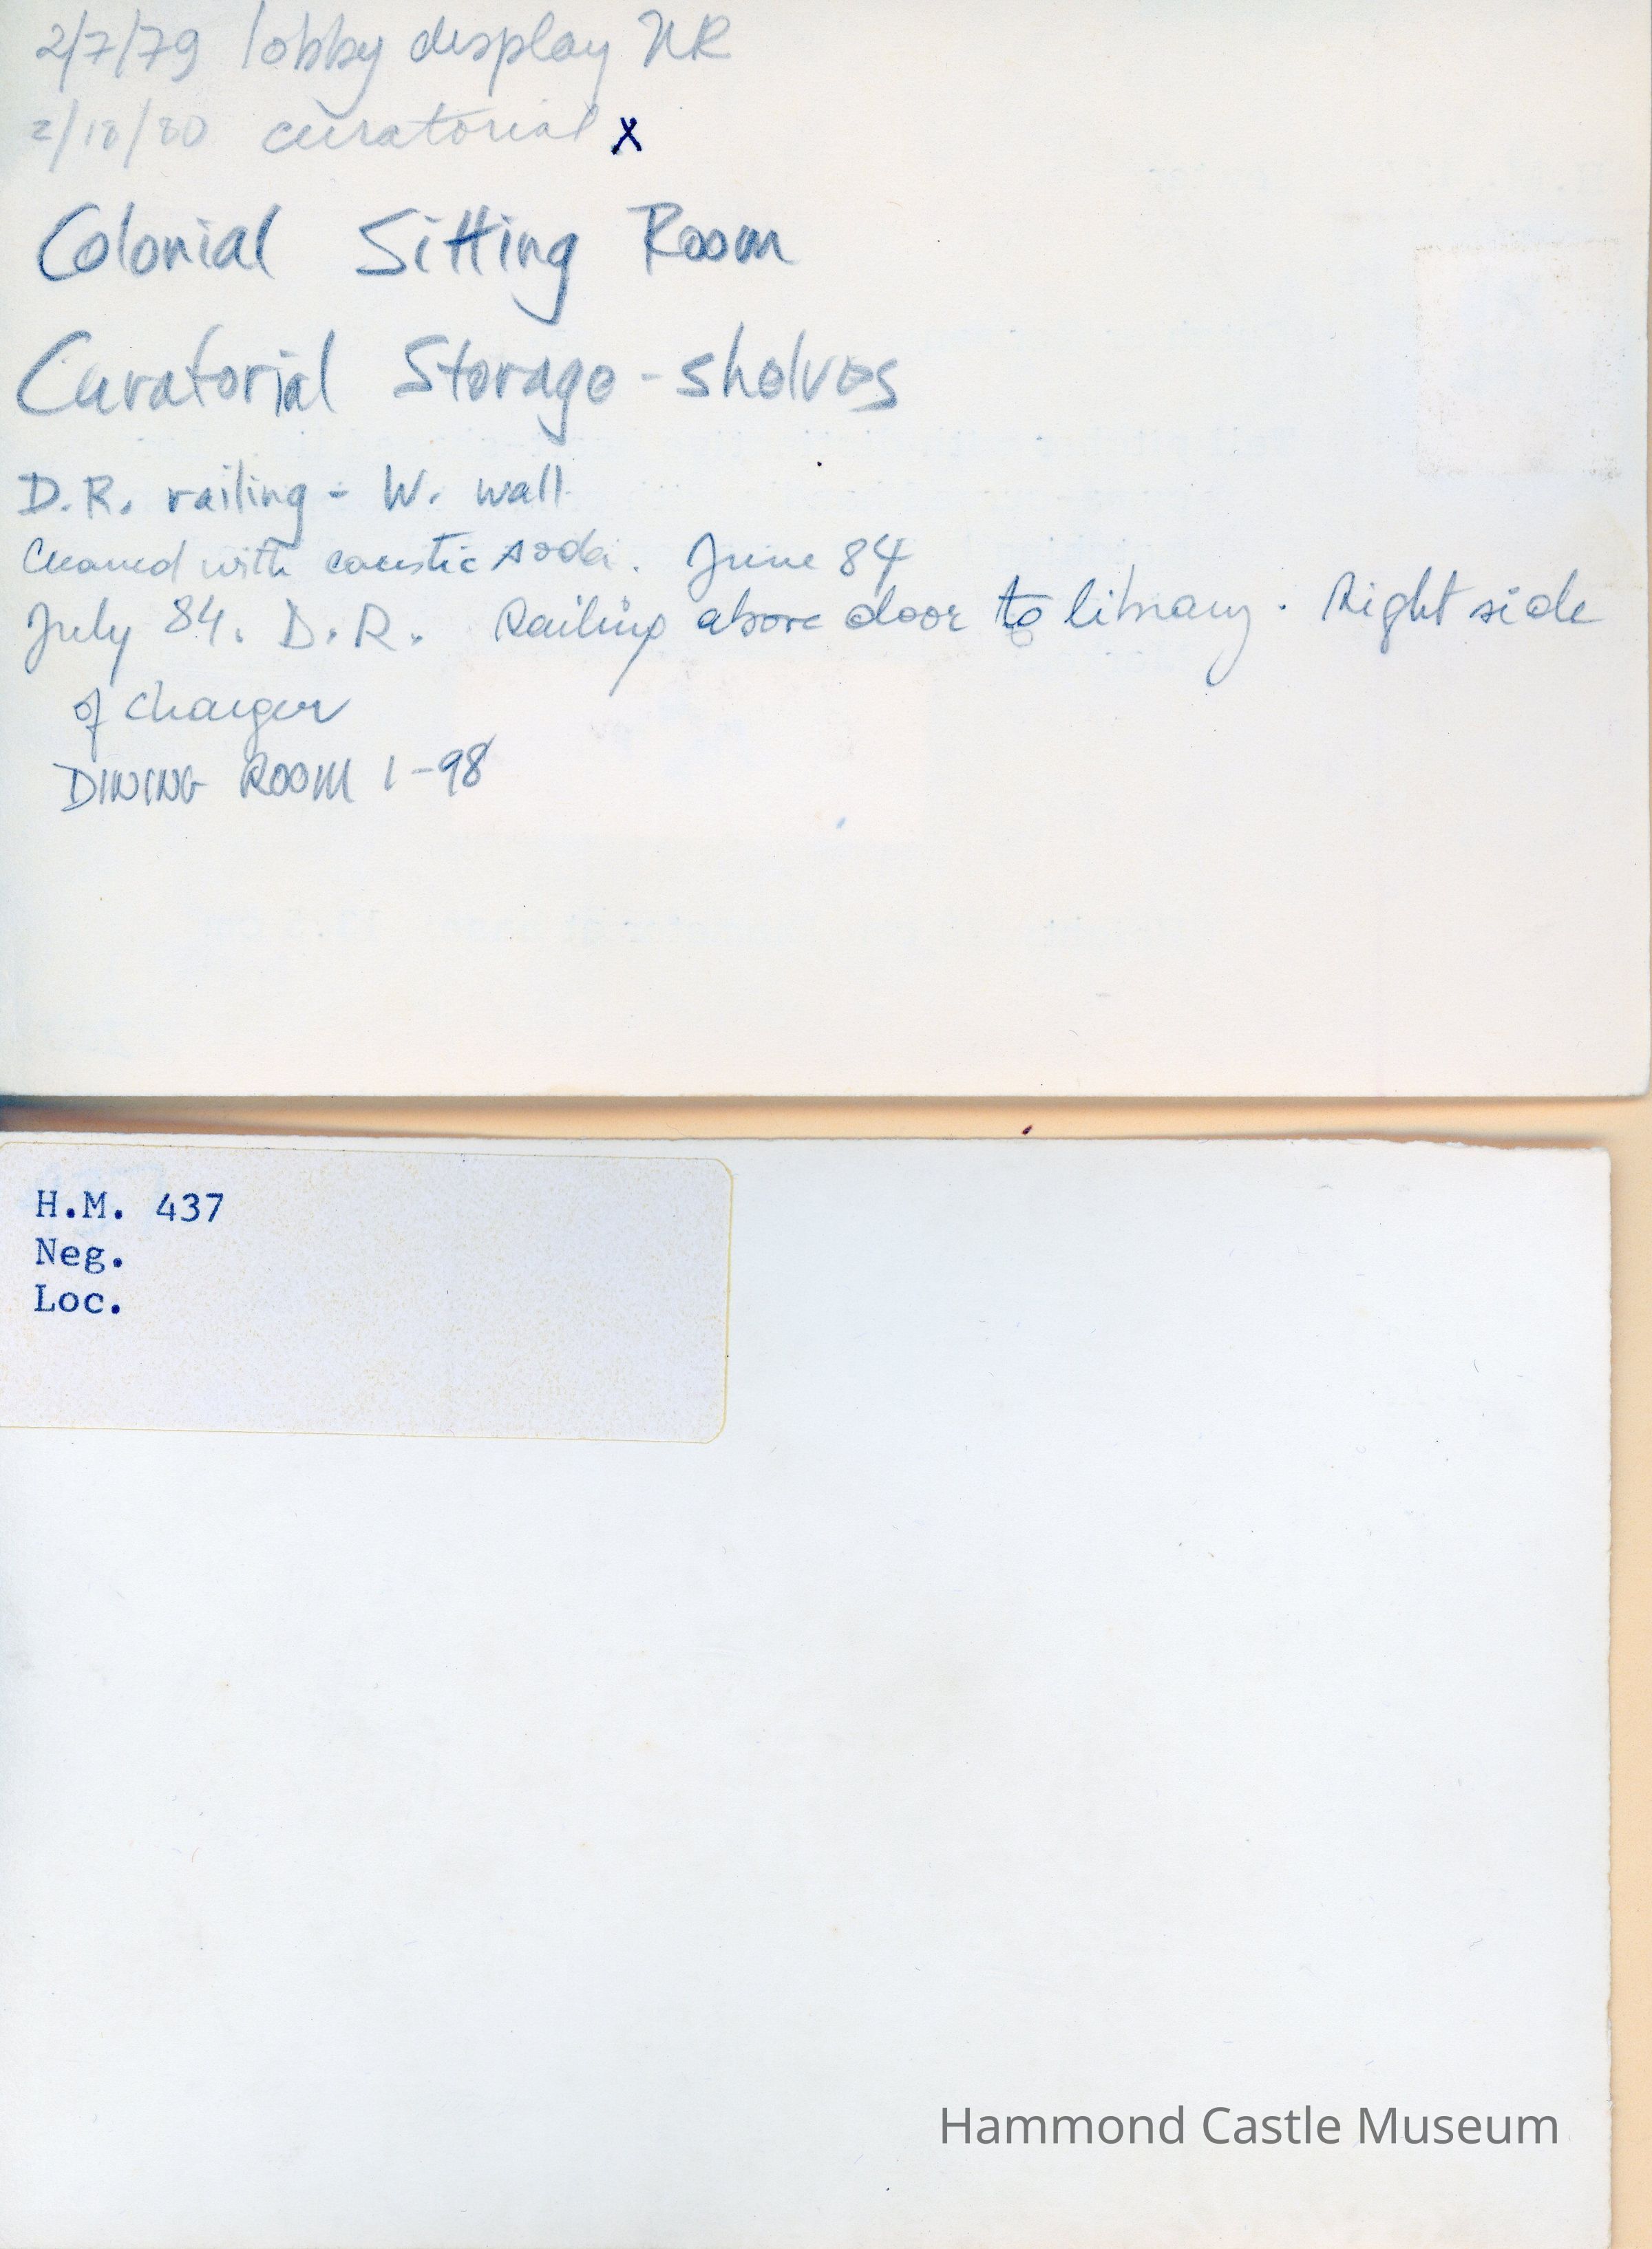 2/7/79 lobby display NR
2/18/80 curatorial x
Colonial Sitting Room
Curatorial Storage - shelves
D.R. railing - W. wall
Cleaned with caustic soda. June 84
July 84. D.R. Railing above door to library. Right side
of charger
DINING ROOM 1-98
H.M. 437
Neg.
Loc.
Hammond Castle Museum